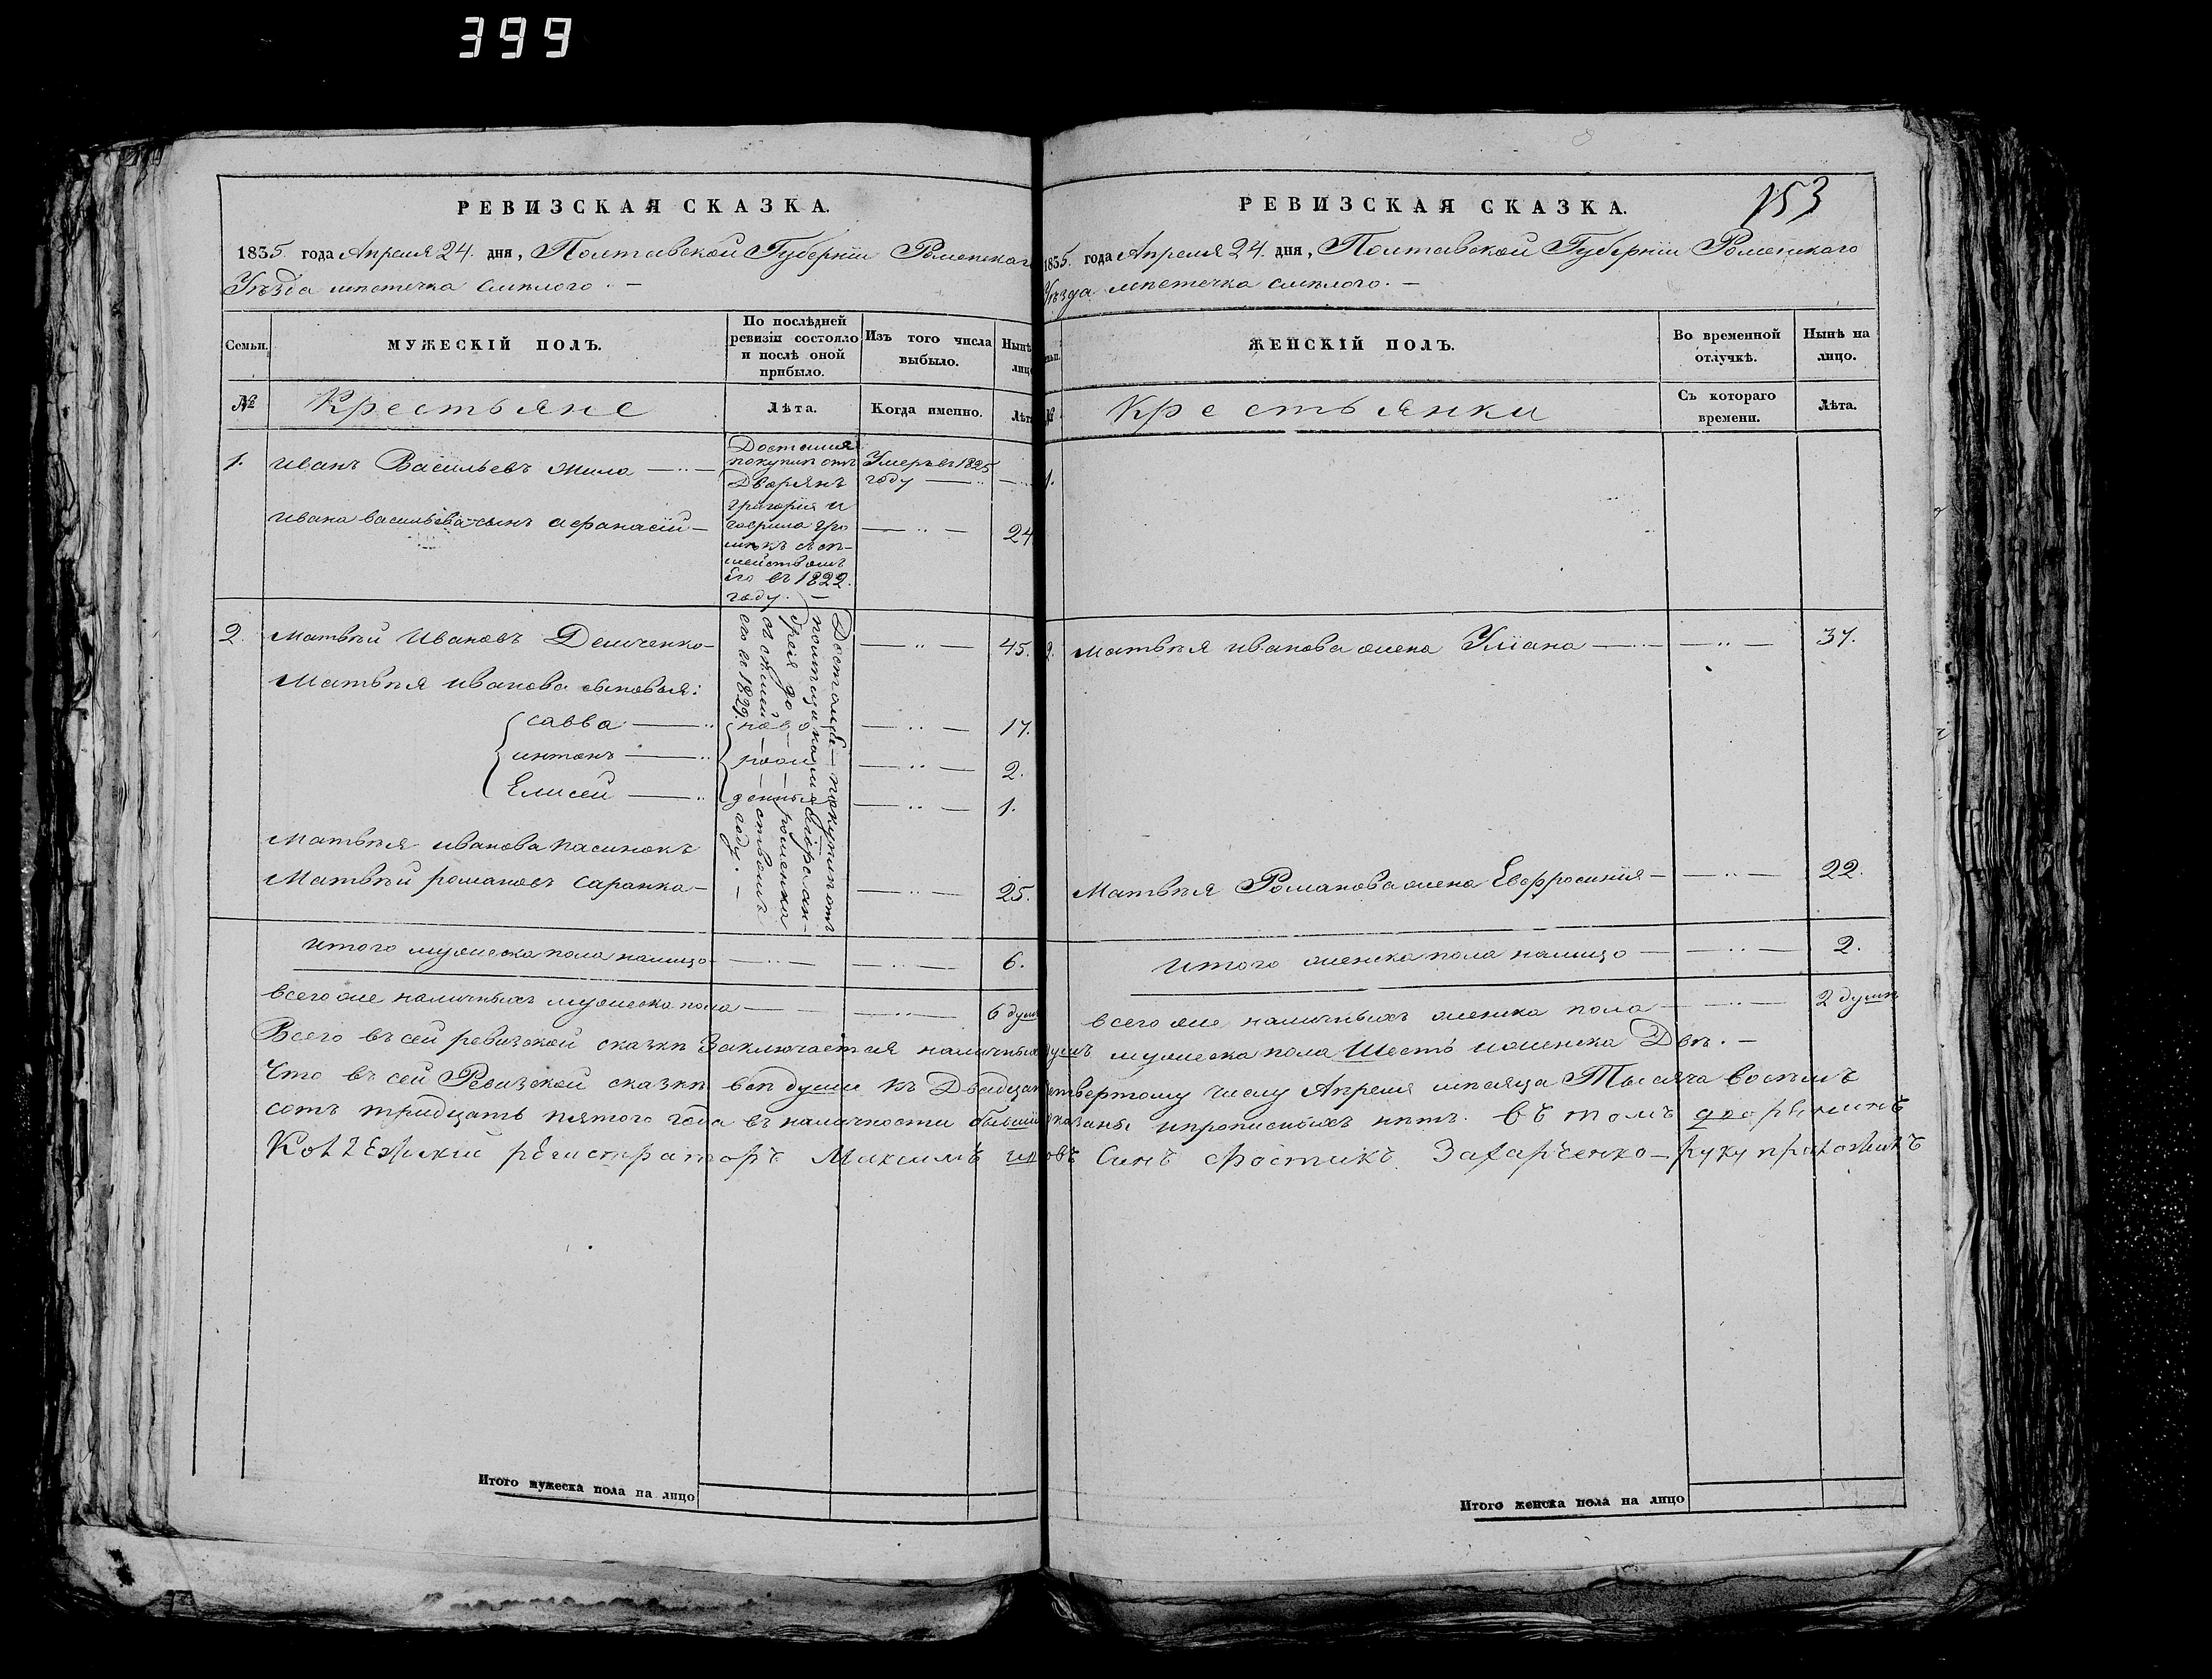 399
РЕВИЗСКАЯ СКАЗКА.
1835. года Апреля 24. дня, Полтавской Губернiи Роменскаго
Уѣзда мѣстечка Смѣлого. —
Семьи.
МУЖЕСКІЙ ПОЛЪ.
По послѣдней
ревизіи состояло
и послѣ оной
прибыло.
Изъ того числа
выбыло.
Нынѣ
лицо
№
Крестьяне
Лѣта.
Когда именно.
Лѣта
1.
Иванъ Васильевъ
Достался
покупки отъ
Дворянъ
Григорія и
Гаврила
его въ 1822.
году. —
Умеръ въ 1825
году —
Ивана Васильева сынъ Афанасій —
24
2.
Матвѣй Ивановъ Демченко —
45.
Достался покупки отъ
его въ 1829. году. —
Матвѣя Иванова сыновья:
Савва —
ново
17.
Антонъ —
рож
2.
Елисей —
денныя
1.
Матвѣя Иванова пасинокъ
Матвѣй Романовъ Саранка —
25.
Итого мужеска пола налицо —
6.
Всего же наличныхъ мужеска пола —
6 душъ
153
РЕВИЗСКАЯ СКАЗКА.
1835. года Апреля 24. дня, Полтавской Губернiи Роменскаго
Уѣзда мѣстечка Смѣлого. —
ЖЕНСКІЙ ПОЛЪ.
Во временной
отлучкѣ.
Нынѣ на
лицо.
№
Крестьянки
Съ котораго
времени.
Лѣта.
1.
2.
Матвѣя Иванова жена Уліана —
37.
Матвѣя Романова жена Евфросинія —
22.
Итого женска пола налицо —
2.
всего же наличныхъ женска пола —
2 души
Всего въ сей ревизской сказки Заключается наличныхъ душъ мужеска пола Шесть и женска Двѣ. —
Что въ сей Ревизской сказки всѣ души къ Двадцать четвертому числу Апреля мѣсяца Тысяча восемъ
сотъ тридцать пятого года въ наличности бывшии показаны и прописныхъ нѣтъ. Въ томъ
Колежский регистраторъ Максимъ Синъ Захарченко — руку приложилъ
Итого мужеска пола на лицо
Итого женска пола на лицо